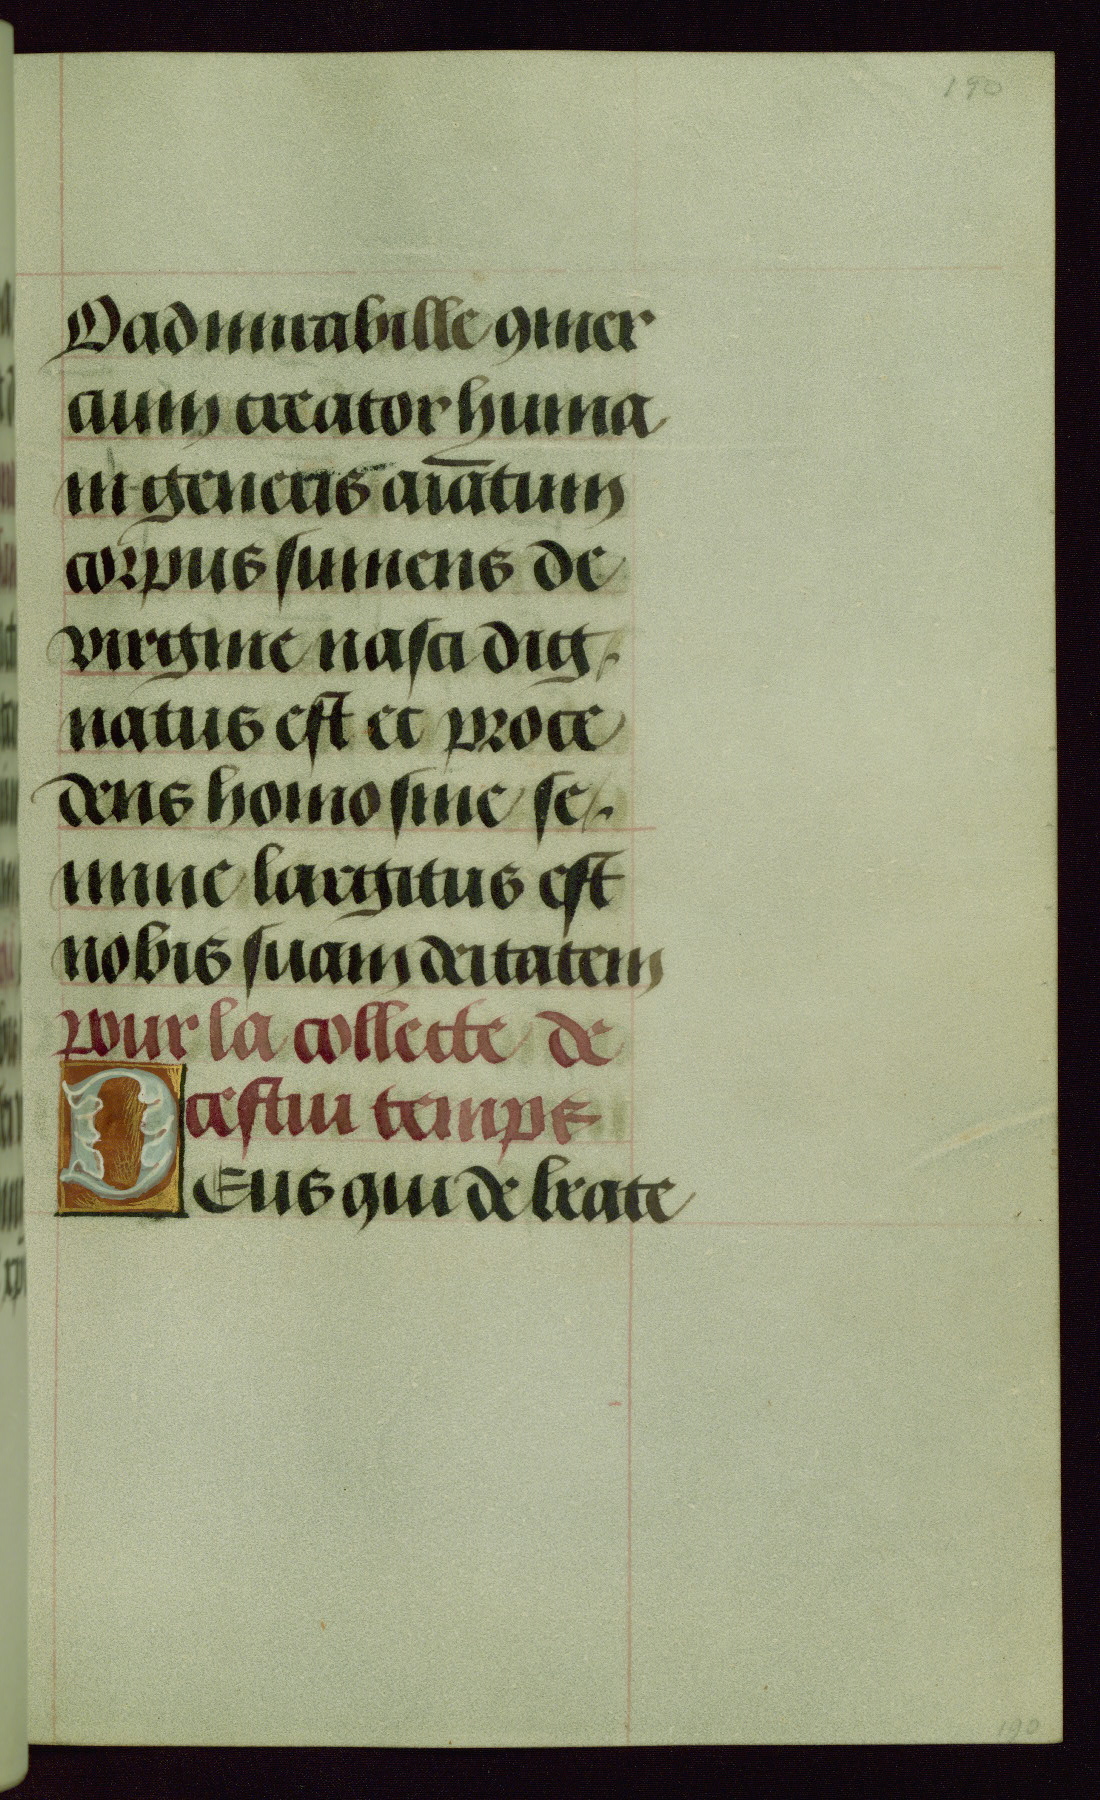 190
O admirabille ꝯmer
cium creator huma
ni generis aīatum
corpus sumens de
virgine nasci dig-
natus est et proce
dens homo sine se-
mine largitus est
nobis suam deitatem
pour la collecte de
cestui temps
Deus qui de beate
190